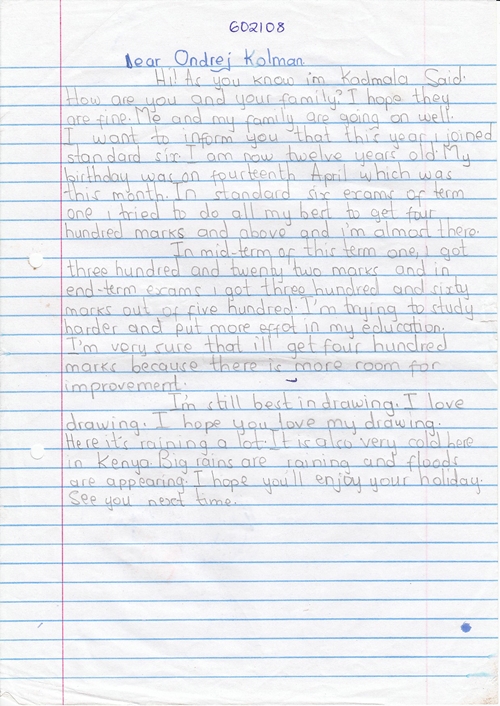 602108
Dear Ondrej Kolman
Hi! As you know im Kadmala Said.
How are you and your family? I hope they
are fine. Me and my family are going on well.
I want to inform you that this year i joined
standard six. I am now twelve years old. My
birthday was on fourteenth April which was
this month. In standard six exams of term
one i tried to do all my best to get four
hundred marks and above and i'm almost there.
In mid-term of this term one, i got
three hundred and twenty two marks and in
end-term exams i got three hundred and sixty
marks out of five hundred. I'm trying to study
harder and put more effot in my education.
I'm very sure that i'll get four hundred
marks because there is more room for
improvement.
I'm still best in drawing. I love
drawing. I hope you love my drawing.
Here it's raining a lot. It is also very cold here
in Kenya. Big rains are raining and floods
are appearing. I hope you'll enjoy your holiday.
See you next time.